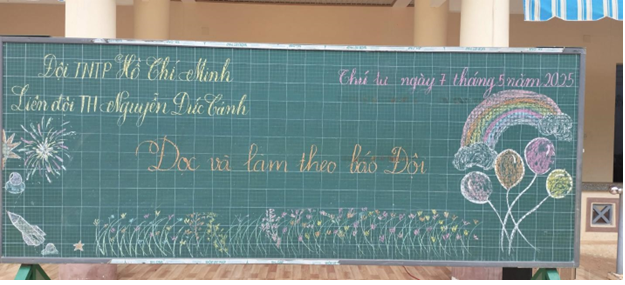 Đội TNTP Hồ Chí Minh
Thứ tư ngày 7 tháng 5 năm 2025
Liên đội TH Nguyễn Đức Cảnh
Đọc và làm theo báo Đội